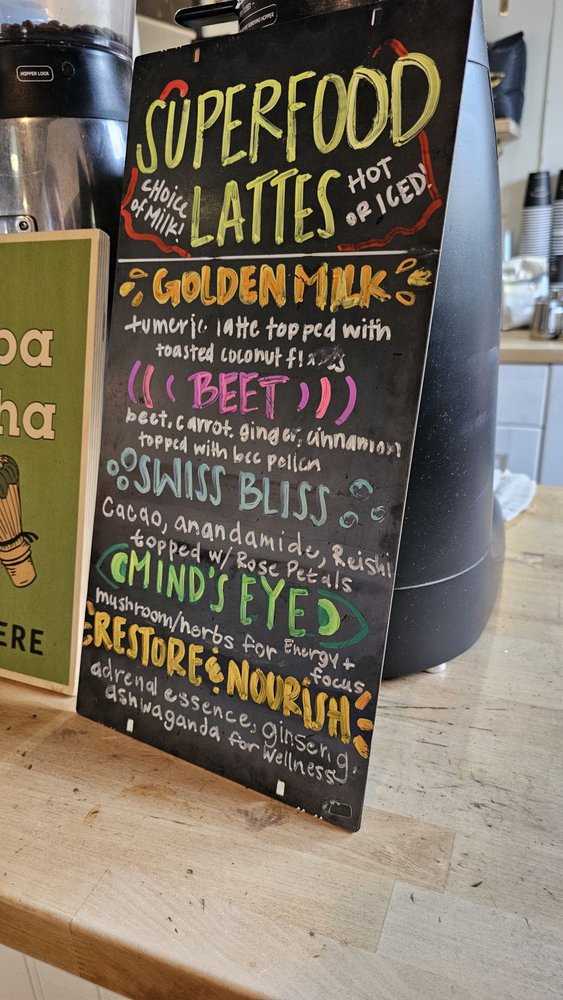 HOPPER LOCK
SUPERFOOD
LATTES
CHOICE
OF MILK!
HOT
OR ICED!
GOLDEN MILK
tumeric latte topped with
toasted coconut
BEET
beet, carrot, ginger, cinnamon
topped with bee pollen
SWISS BLISS
Cacao, anandamide, Reishi
topped w/ Rose Petals
MIND'S EYE
mushroom/herbs for Energy +
focus
RESTORE & NOURISH
adrenal essence, ginseng,
ashwaganda for wellness
pa
ha
ERE